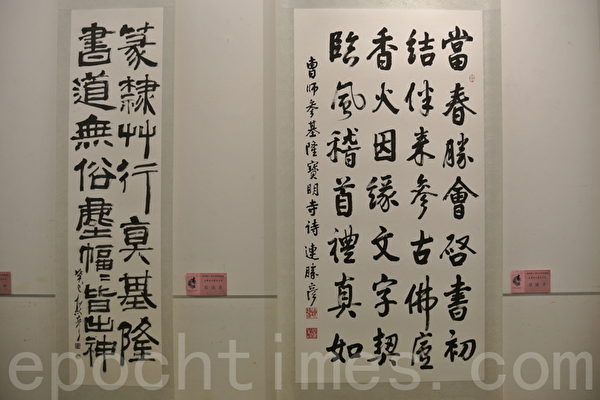 當春勝會啓書初
結伴来參古佛廬
香火因緣文字契
臨風稽首禮真如
曹師參基隆寶明寺詩 連勝彥
篆隸艸行真基隆
書道無俗塵幅々皆出神
癸巳
epochtimes.com